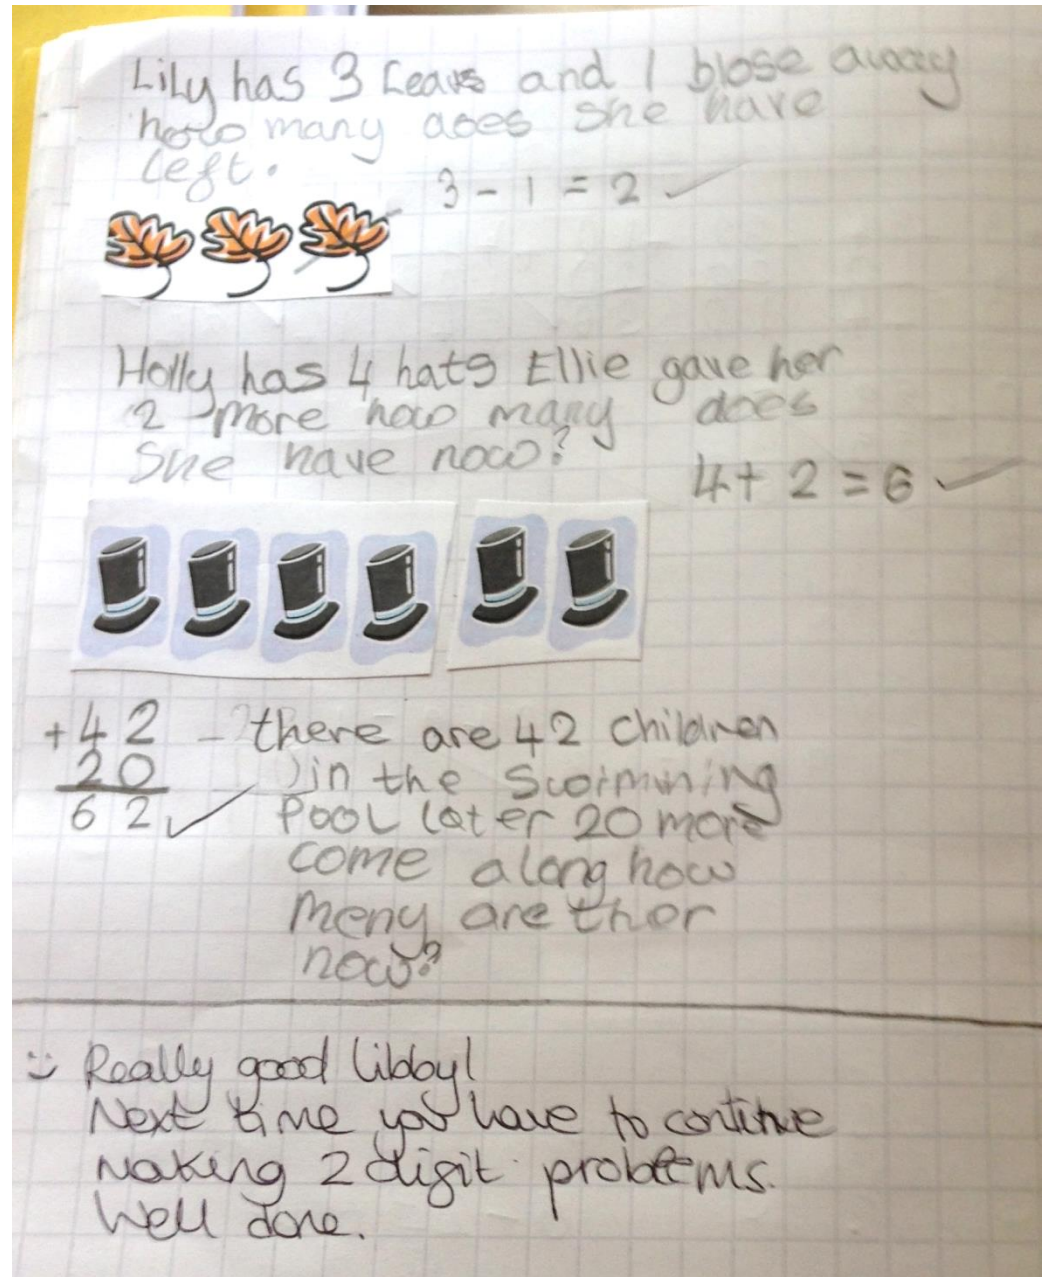 Lily has 3 Leavs and 1 blose away
how many does she have
left.
3 - 1 = 2 ✓
Holly has 4 hats Ellie gave her
2 more how many does
she have now?
4 + 2 = 6 ✓
+42 - there are 42 children
20 in the Swimming
62 ✓ Pool later 20 more
come along how
meny are ther
now?
Really good Libby!
Next time you have to continue
making 2 digit problems.
Well done.